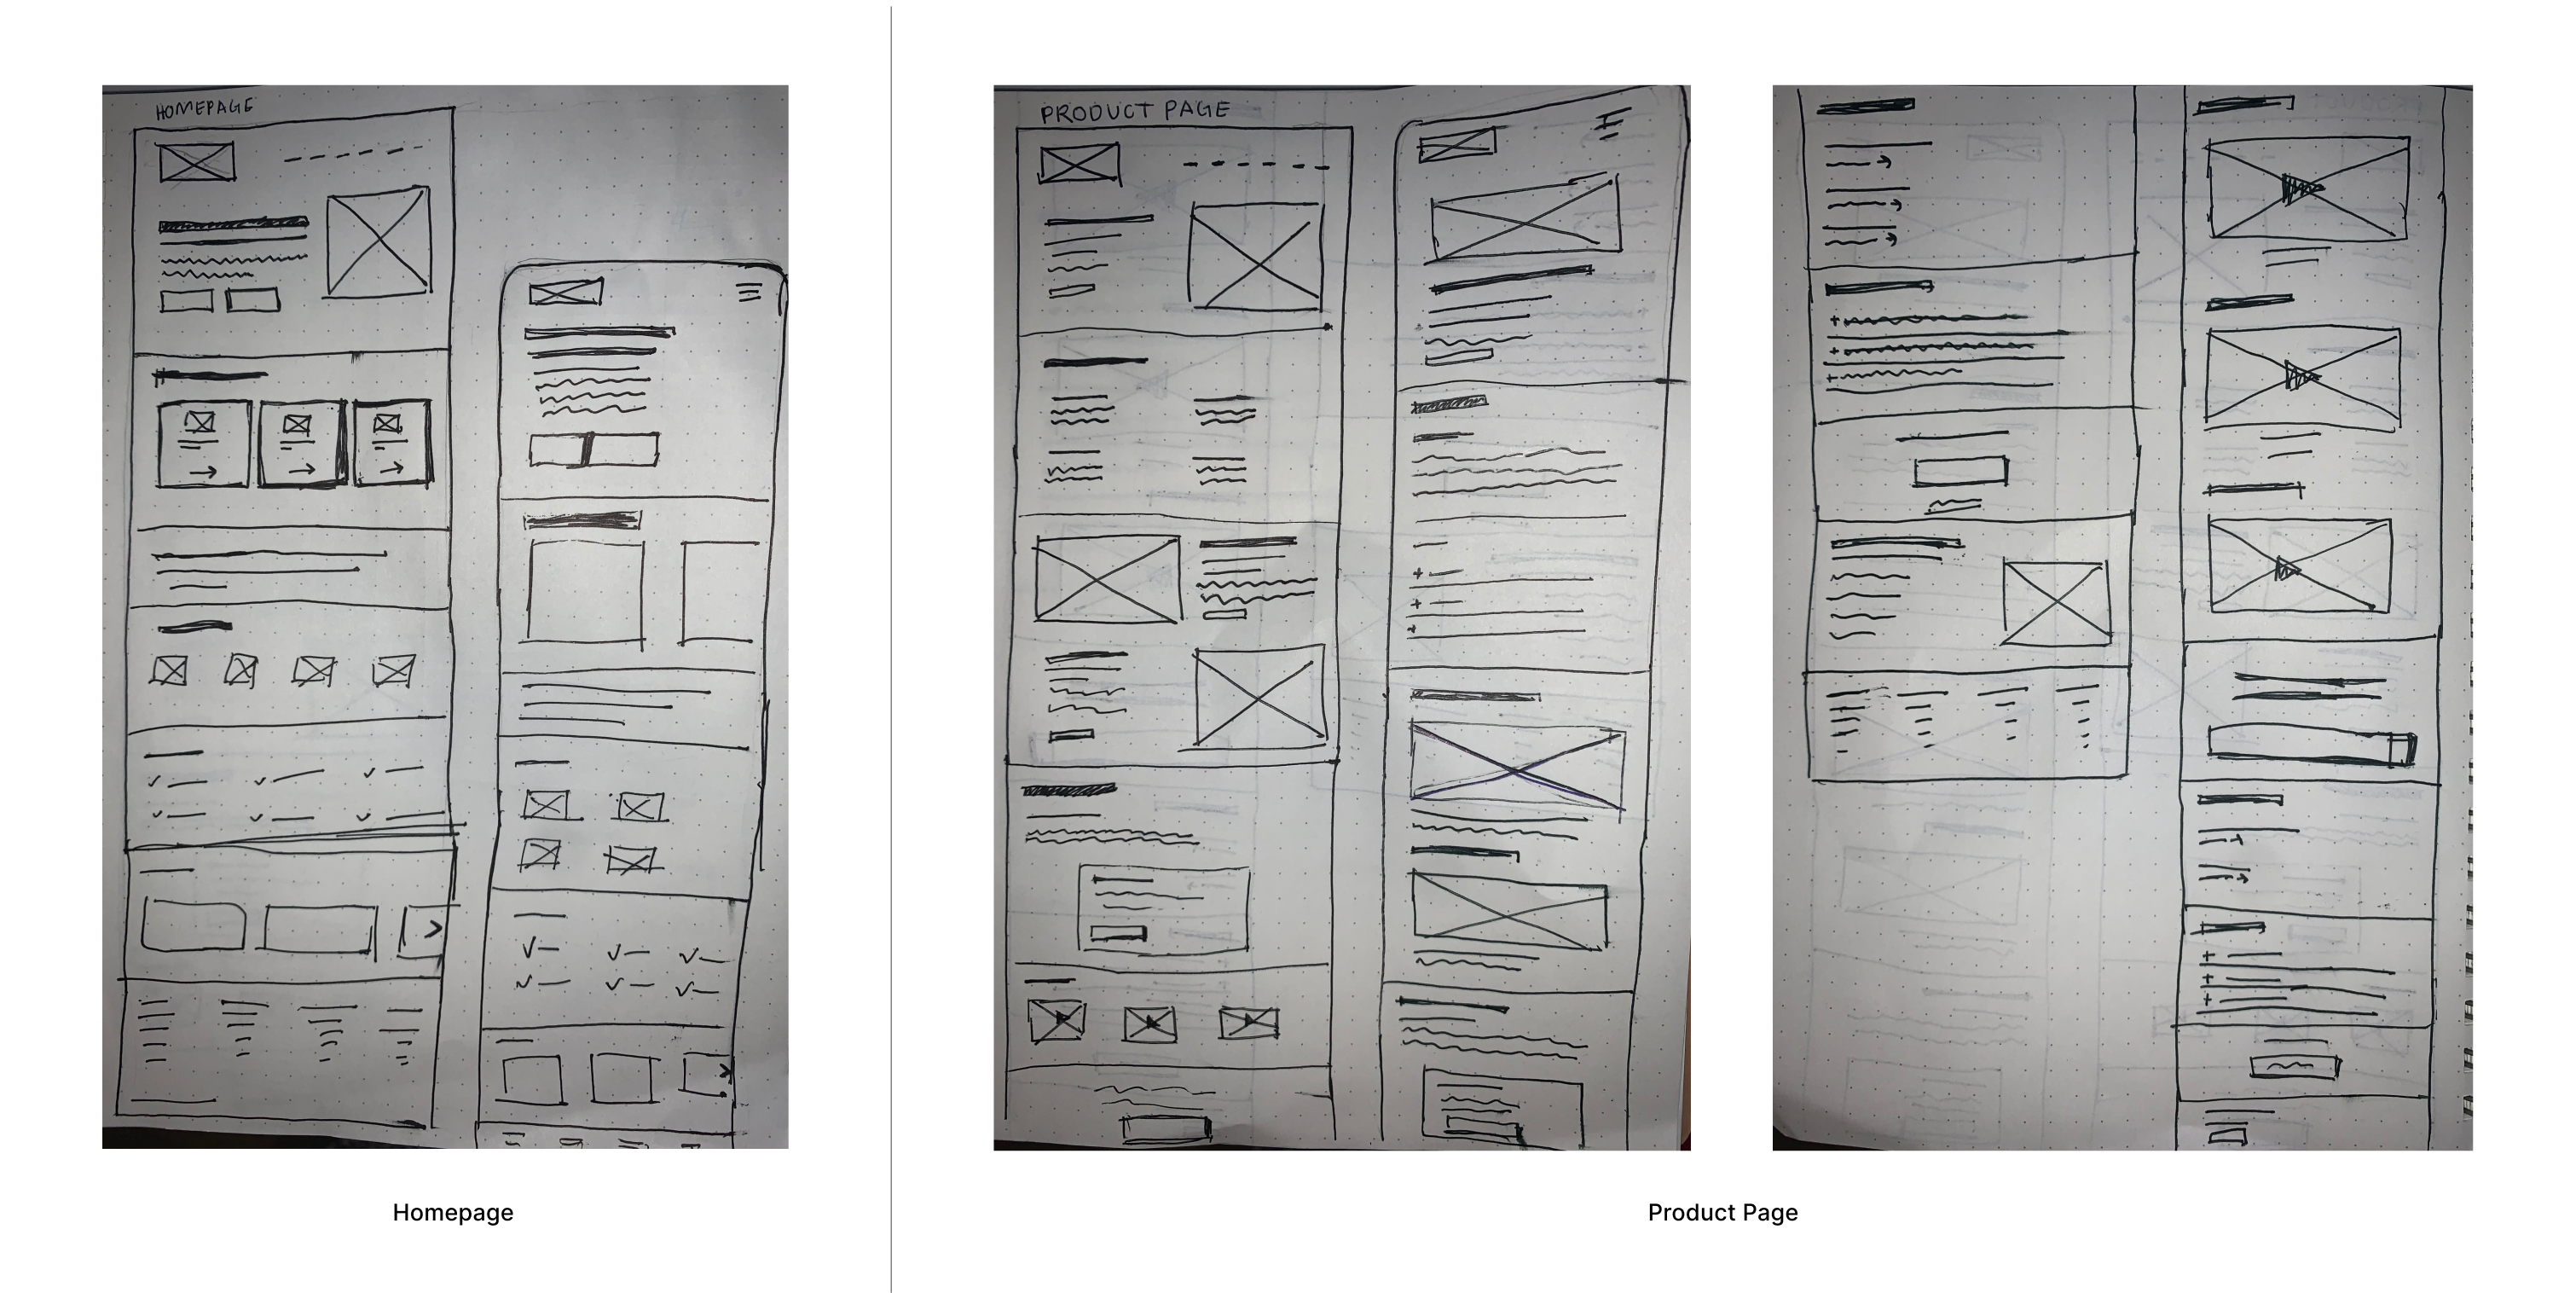 HOMEPAGE
PRODUCT PAGE
Homepage
Product Page